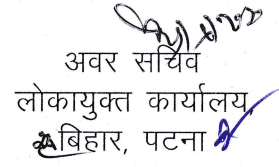 अवर सचिव
लोकायुक्त कार्यालय,
बिहार, पटना